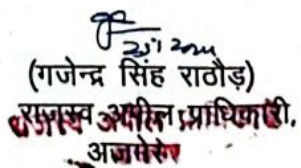 (गजेन्द्र सिंह राठौड़)
राजस्व अपील प्राधिकारी,
अजमेर